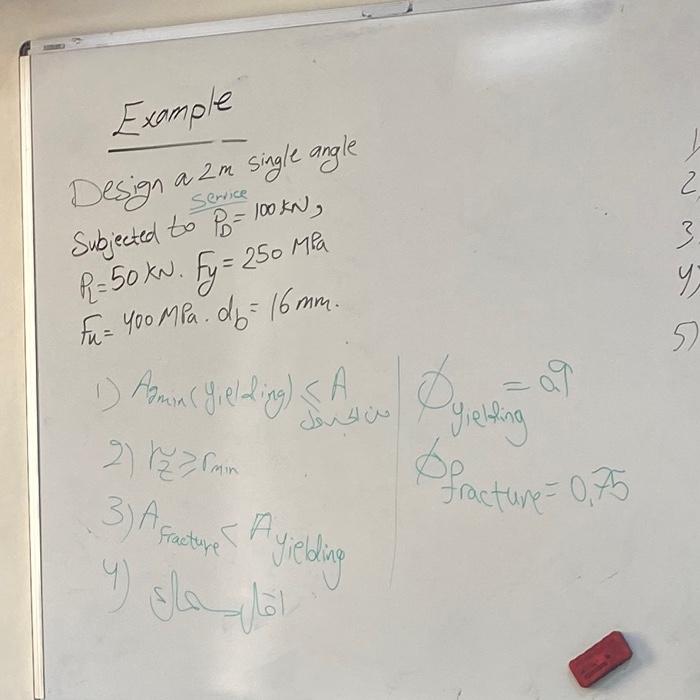 Example
Design a 2m single angle
service
Subjected to P_D = 100 kN,
P_L = 50 kN. Fy = 250 MPa
Fu = 400 MPa. d_b = 16 mm.
1) A_gmin (yielding) < A من الجدول
2) r_z ≥ r_min
3) A_fracture < A_yielding
4) اقل سماكة
ϕ_yielding = 0.9
ϕ_fracture = 0,75
1)
2
3
4)
5)